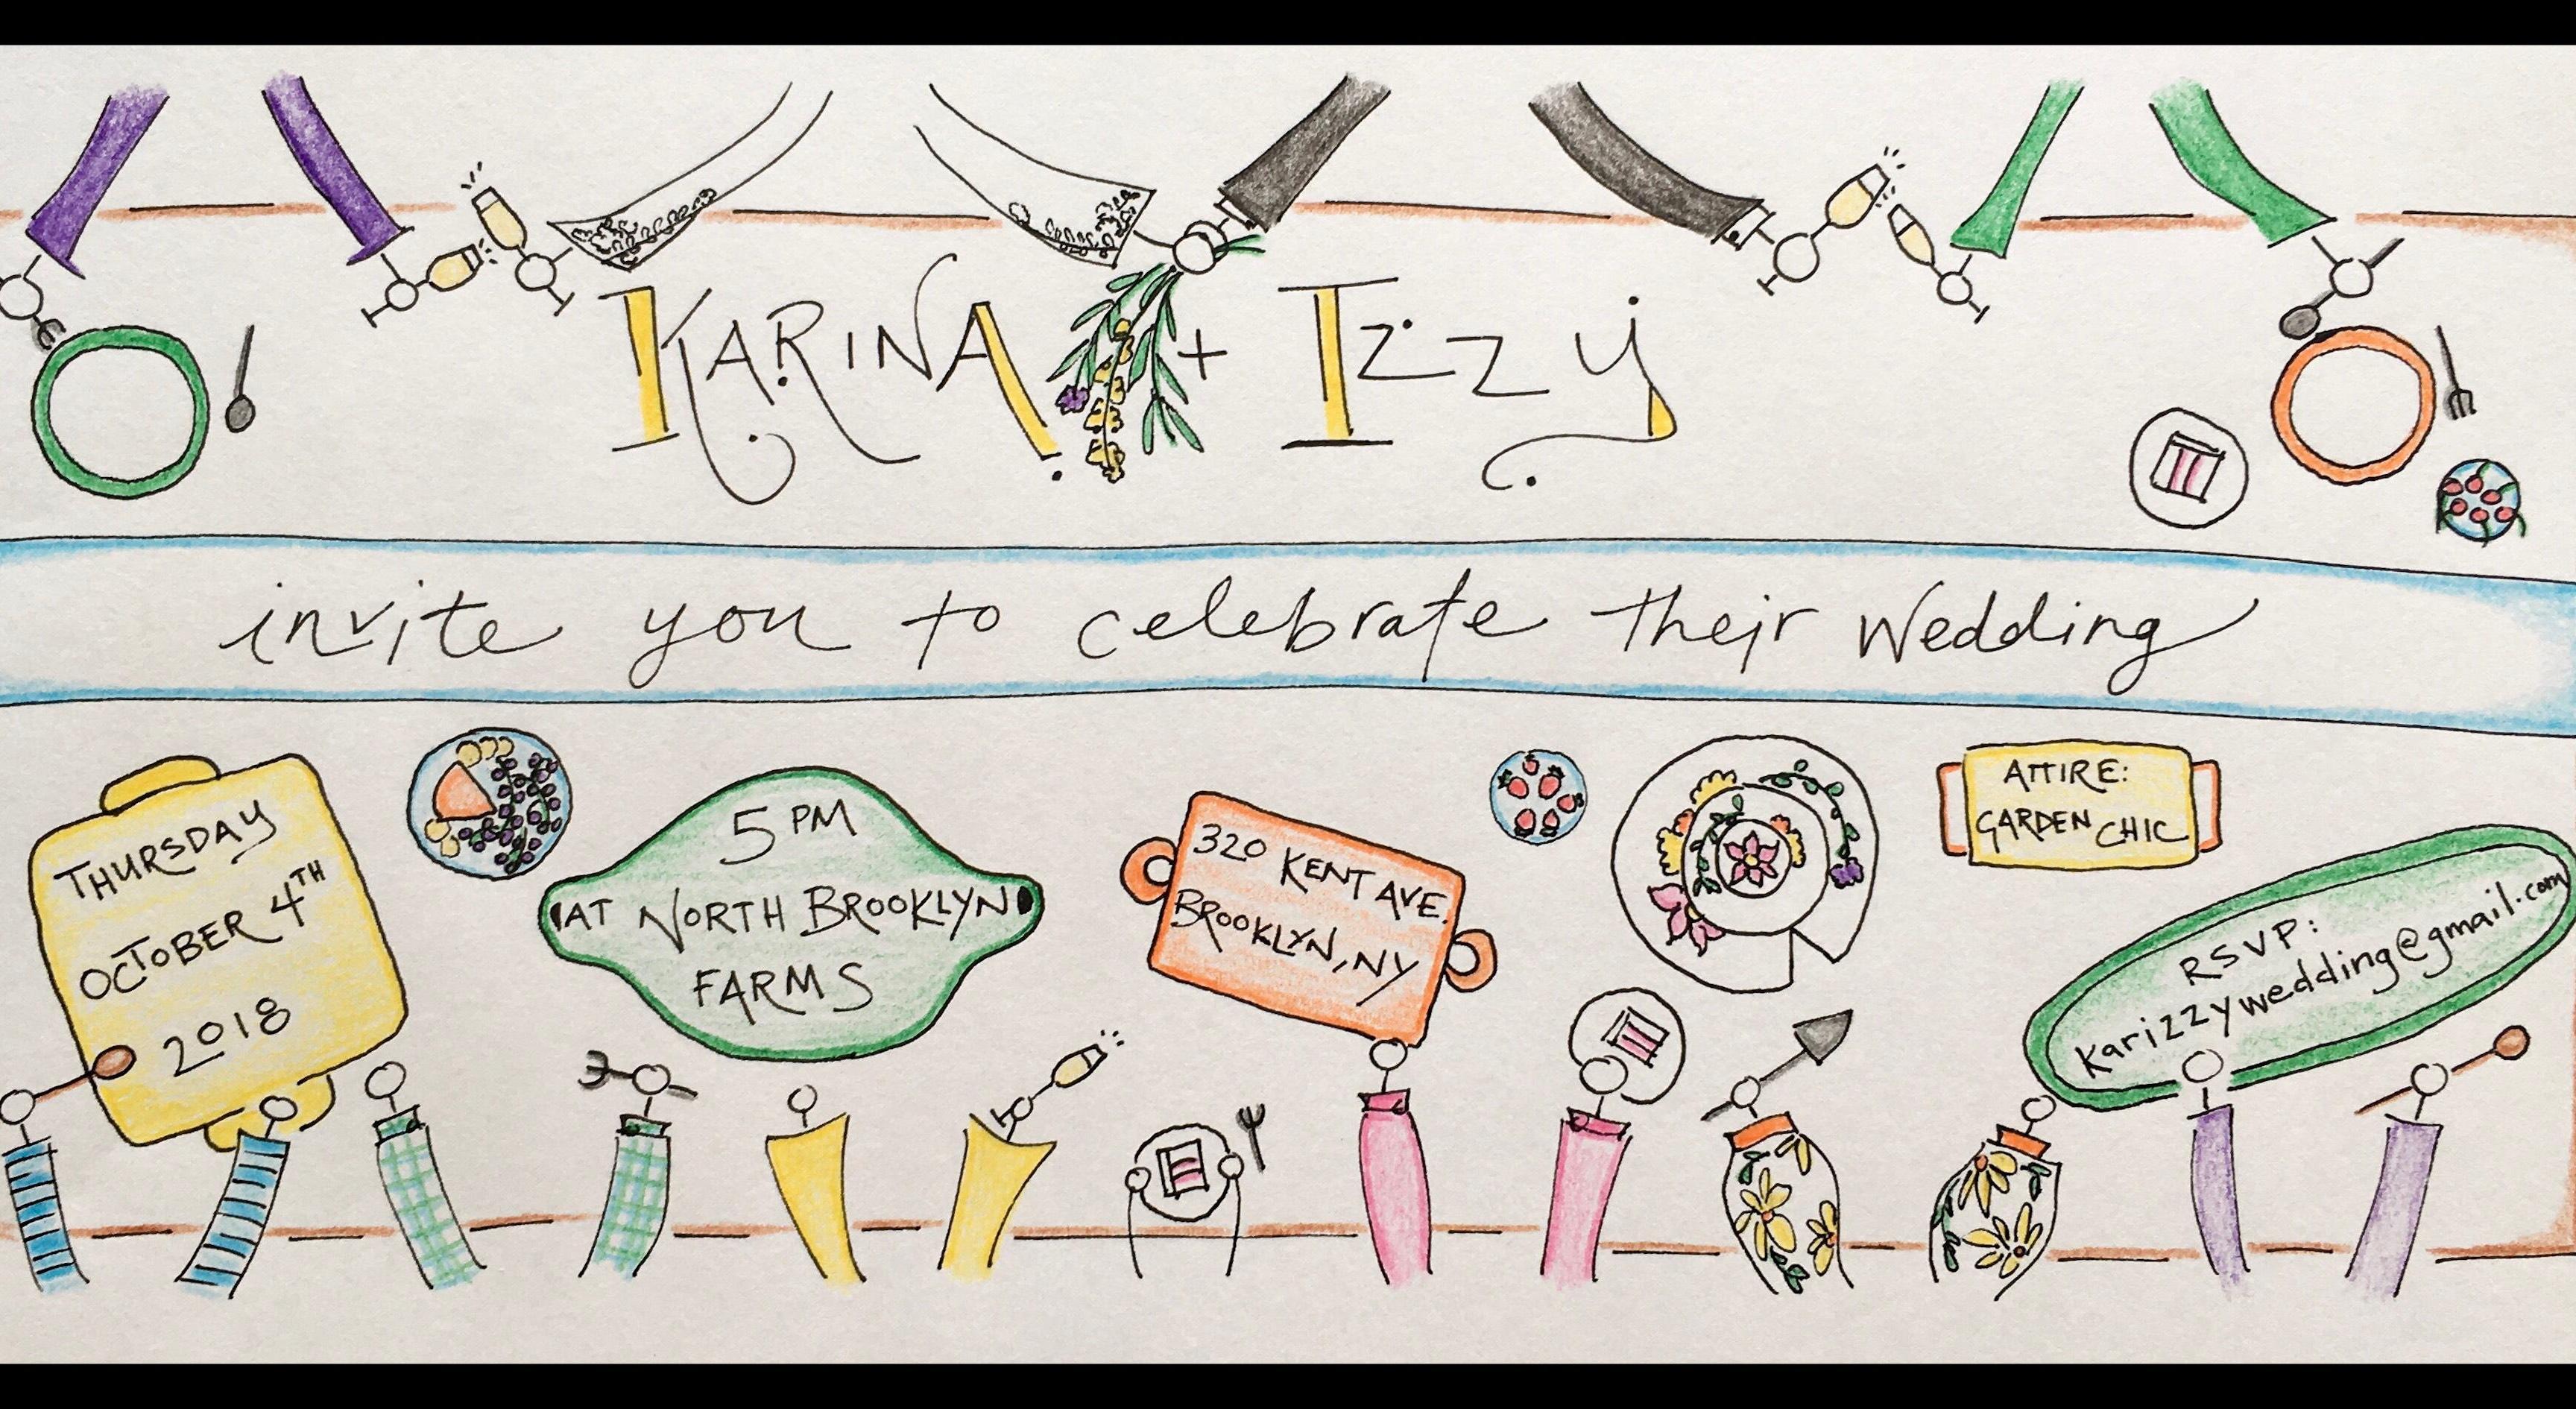 KARINA + Izzy
invite you to celebrate their Wedding
THURSDAY
OCTOBER 4TH
2018
5 PM
AT NORTH BROOKLYN
FARMS
320 KENT AVE.
BROOKLYN, NY
ATTIRE:
GARDEN CHIC
RSVP:
Karizzywedding@gmail.com